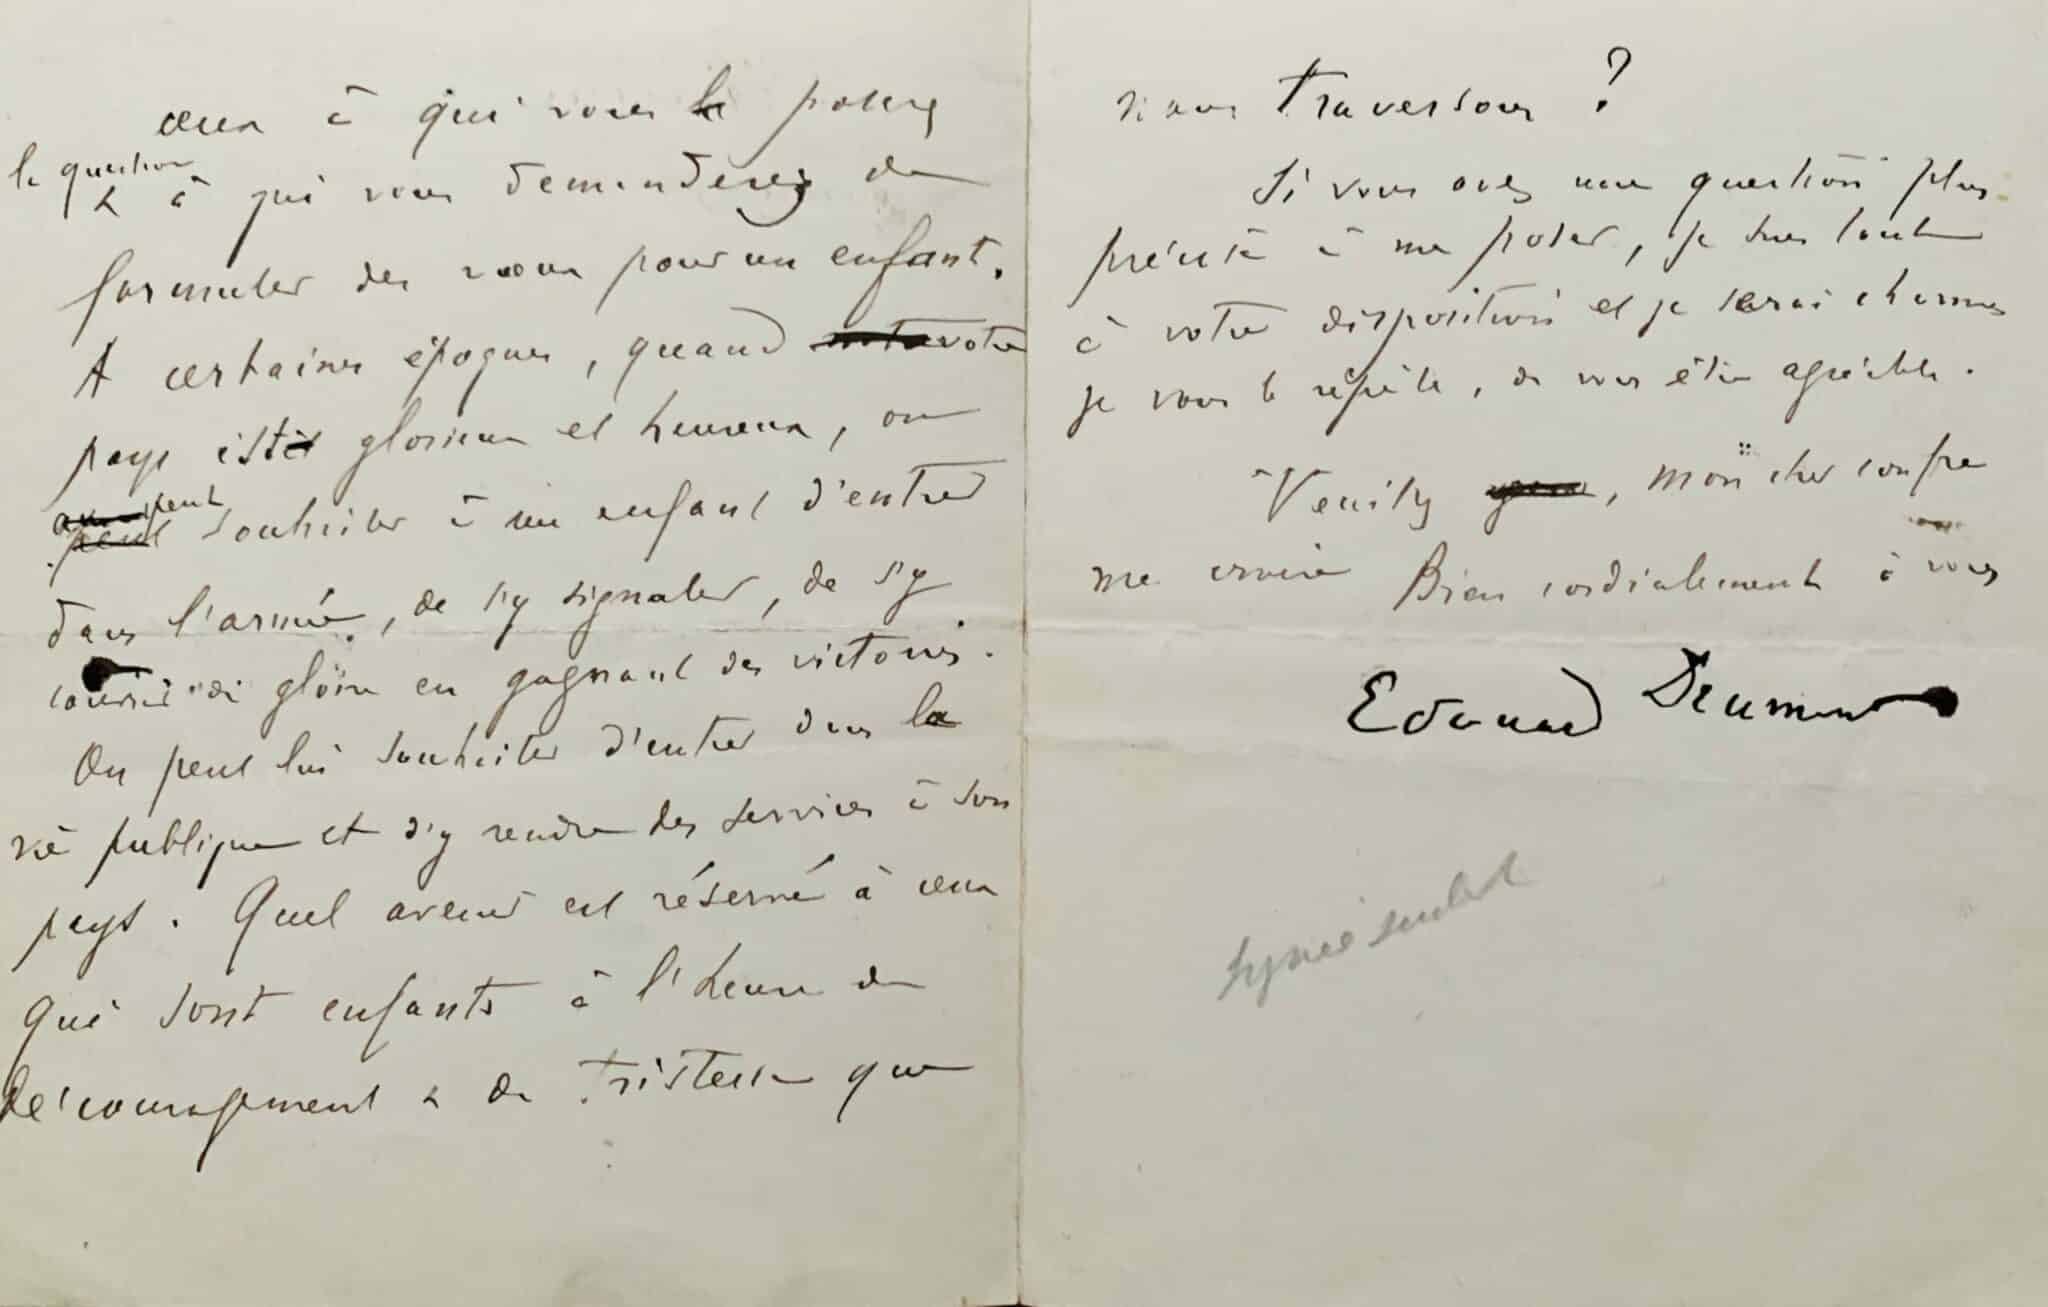 ceux à qui vous posez
la question
& à qui vous demanderez de
formuler des vœux pour un enfant.
A certaines époques, quand votre
pays était glorieux et heureux, on
peut
souhaiter à un enfant d'entrer
dans l'armée, de s'y signaler, de s'y
couvrir de gloire en gagnant des victoires.
On peut lui souhaiter d'entrer dans la
vie publique et d'y rendre des services à son
pays. Quel avenir est réservé à ceux
qui sont enfants à l'heure de
découragement & de tristesse que
nous traversons ?
Si vous avez une question plus
précise à me poser, je suis tout
à votre disposition et je serai charmé
je vous le répète, de vous être agréable.
Veuillez , mon cher confre
me croire Bien cordialement à vous
Edouard Drumont